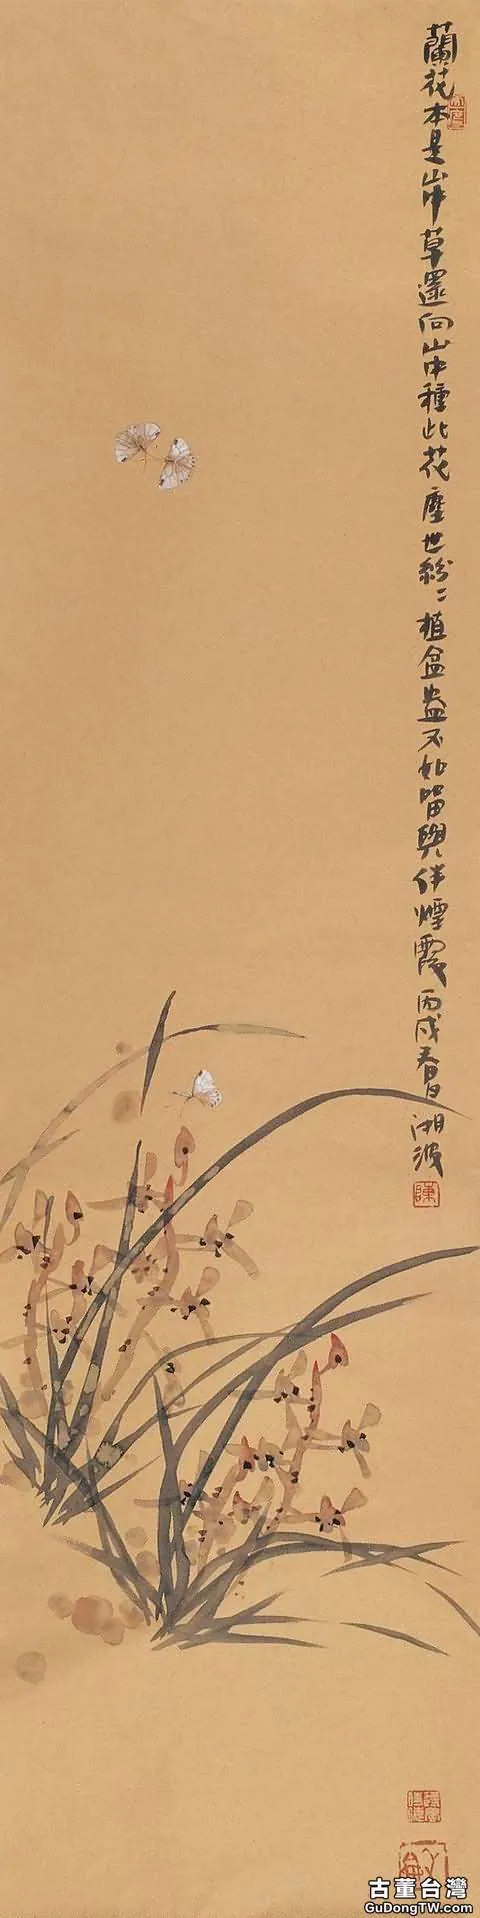 蘭花本是山中草還向山中種此花塵世紛〻植盆盎不如留與伴煙霞丙戌春湘波
陳
古董台灣
GuDongTW.com